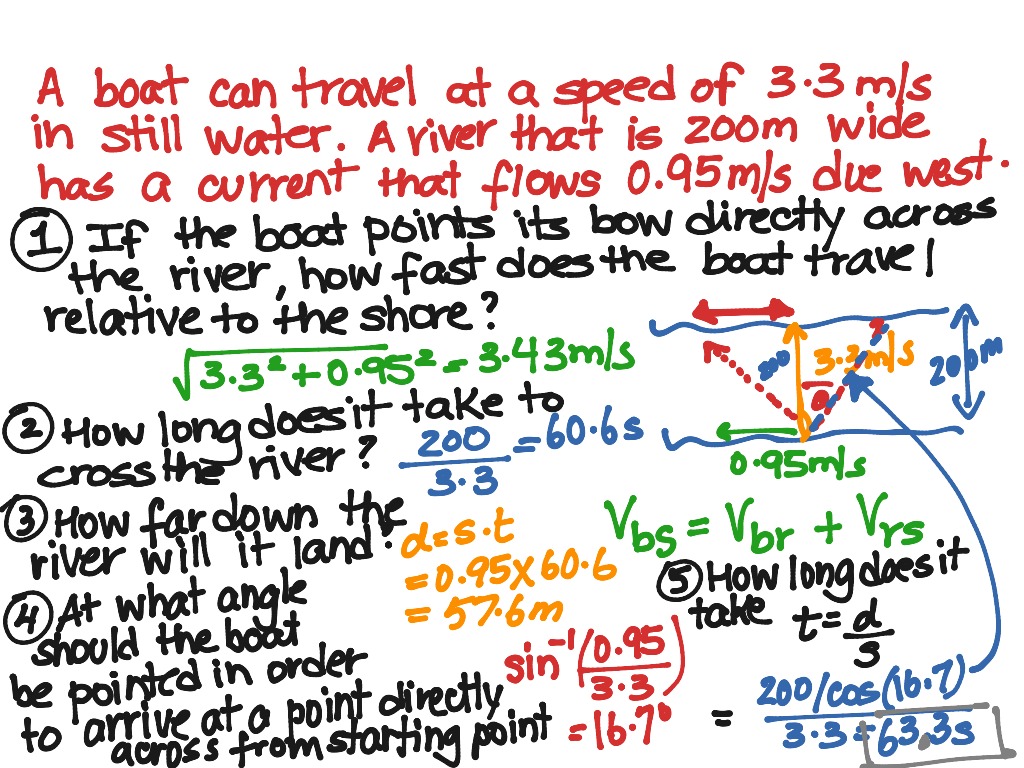 A boat can travel at a speed of 3.3 m/s
in still water. A river that is 200m wide
has a current that flows 0.95 m/s due west.
① If the boat points its bow directly across
the river, how fast does the boat travel
relative to the shore?
√3.3² + 0.95² = 3.43 m/s
② How long does it take to
cross the river?
200/3.3 = 60.6 s
③ How far down the
river will it land?
d = s·t
= 0.95 x 60.6
= 57.6 m
④ At what angle
should the boat
be pointed in order
to arrive at a point directly
across from starting point
sin⁻¹(0.95/3.3)
= 16.7°
200
3.3 m/s
?
θ
200 m
0.95 m/s
Vbs = Vbr + Vrs
⑤ How long does it
take t = d/s
= 200/cos(16.7)
3.3 = 63.3s